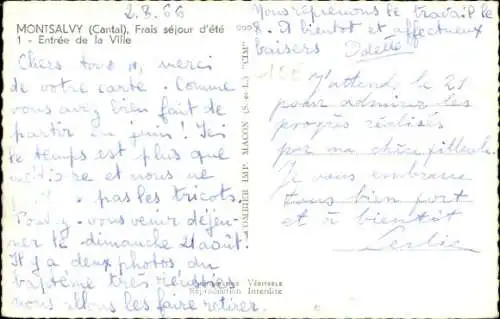 2.8.66
MONTSALVY (Cantal), Frais séjour d'été
1 - Entrée de la Ville
Chers tous, merci
de votre carte. Comme
vous avez bien fait de
partir en juin! Ici
le temps est plus que
et nous ne
pas les tricots.
vous venir déjeu-
ner le dimanche 21 août!
Il y a deux photos du
baptême très réussies
nous allons les faire retirer.
Nous reprenons le travail le
8. A bientôt et affectueux
baisers Odette
COMBIER IMP. MACON (S.-et-L.) "CIM"
J'attend le 21
pour admirer les
progrès réalisés
par ma chère filleule.
Je vous embrasse
tous bien fort
et à bientôt
Leslie
Véritable
Reproduction Interdite